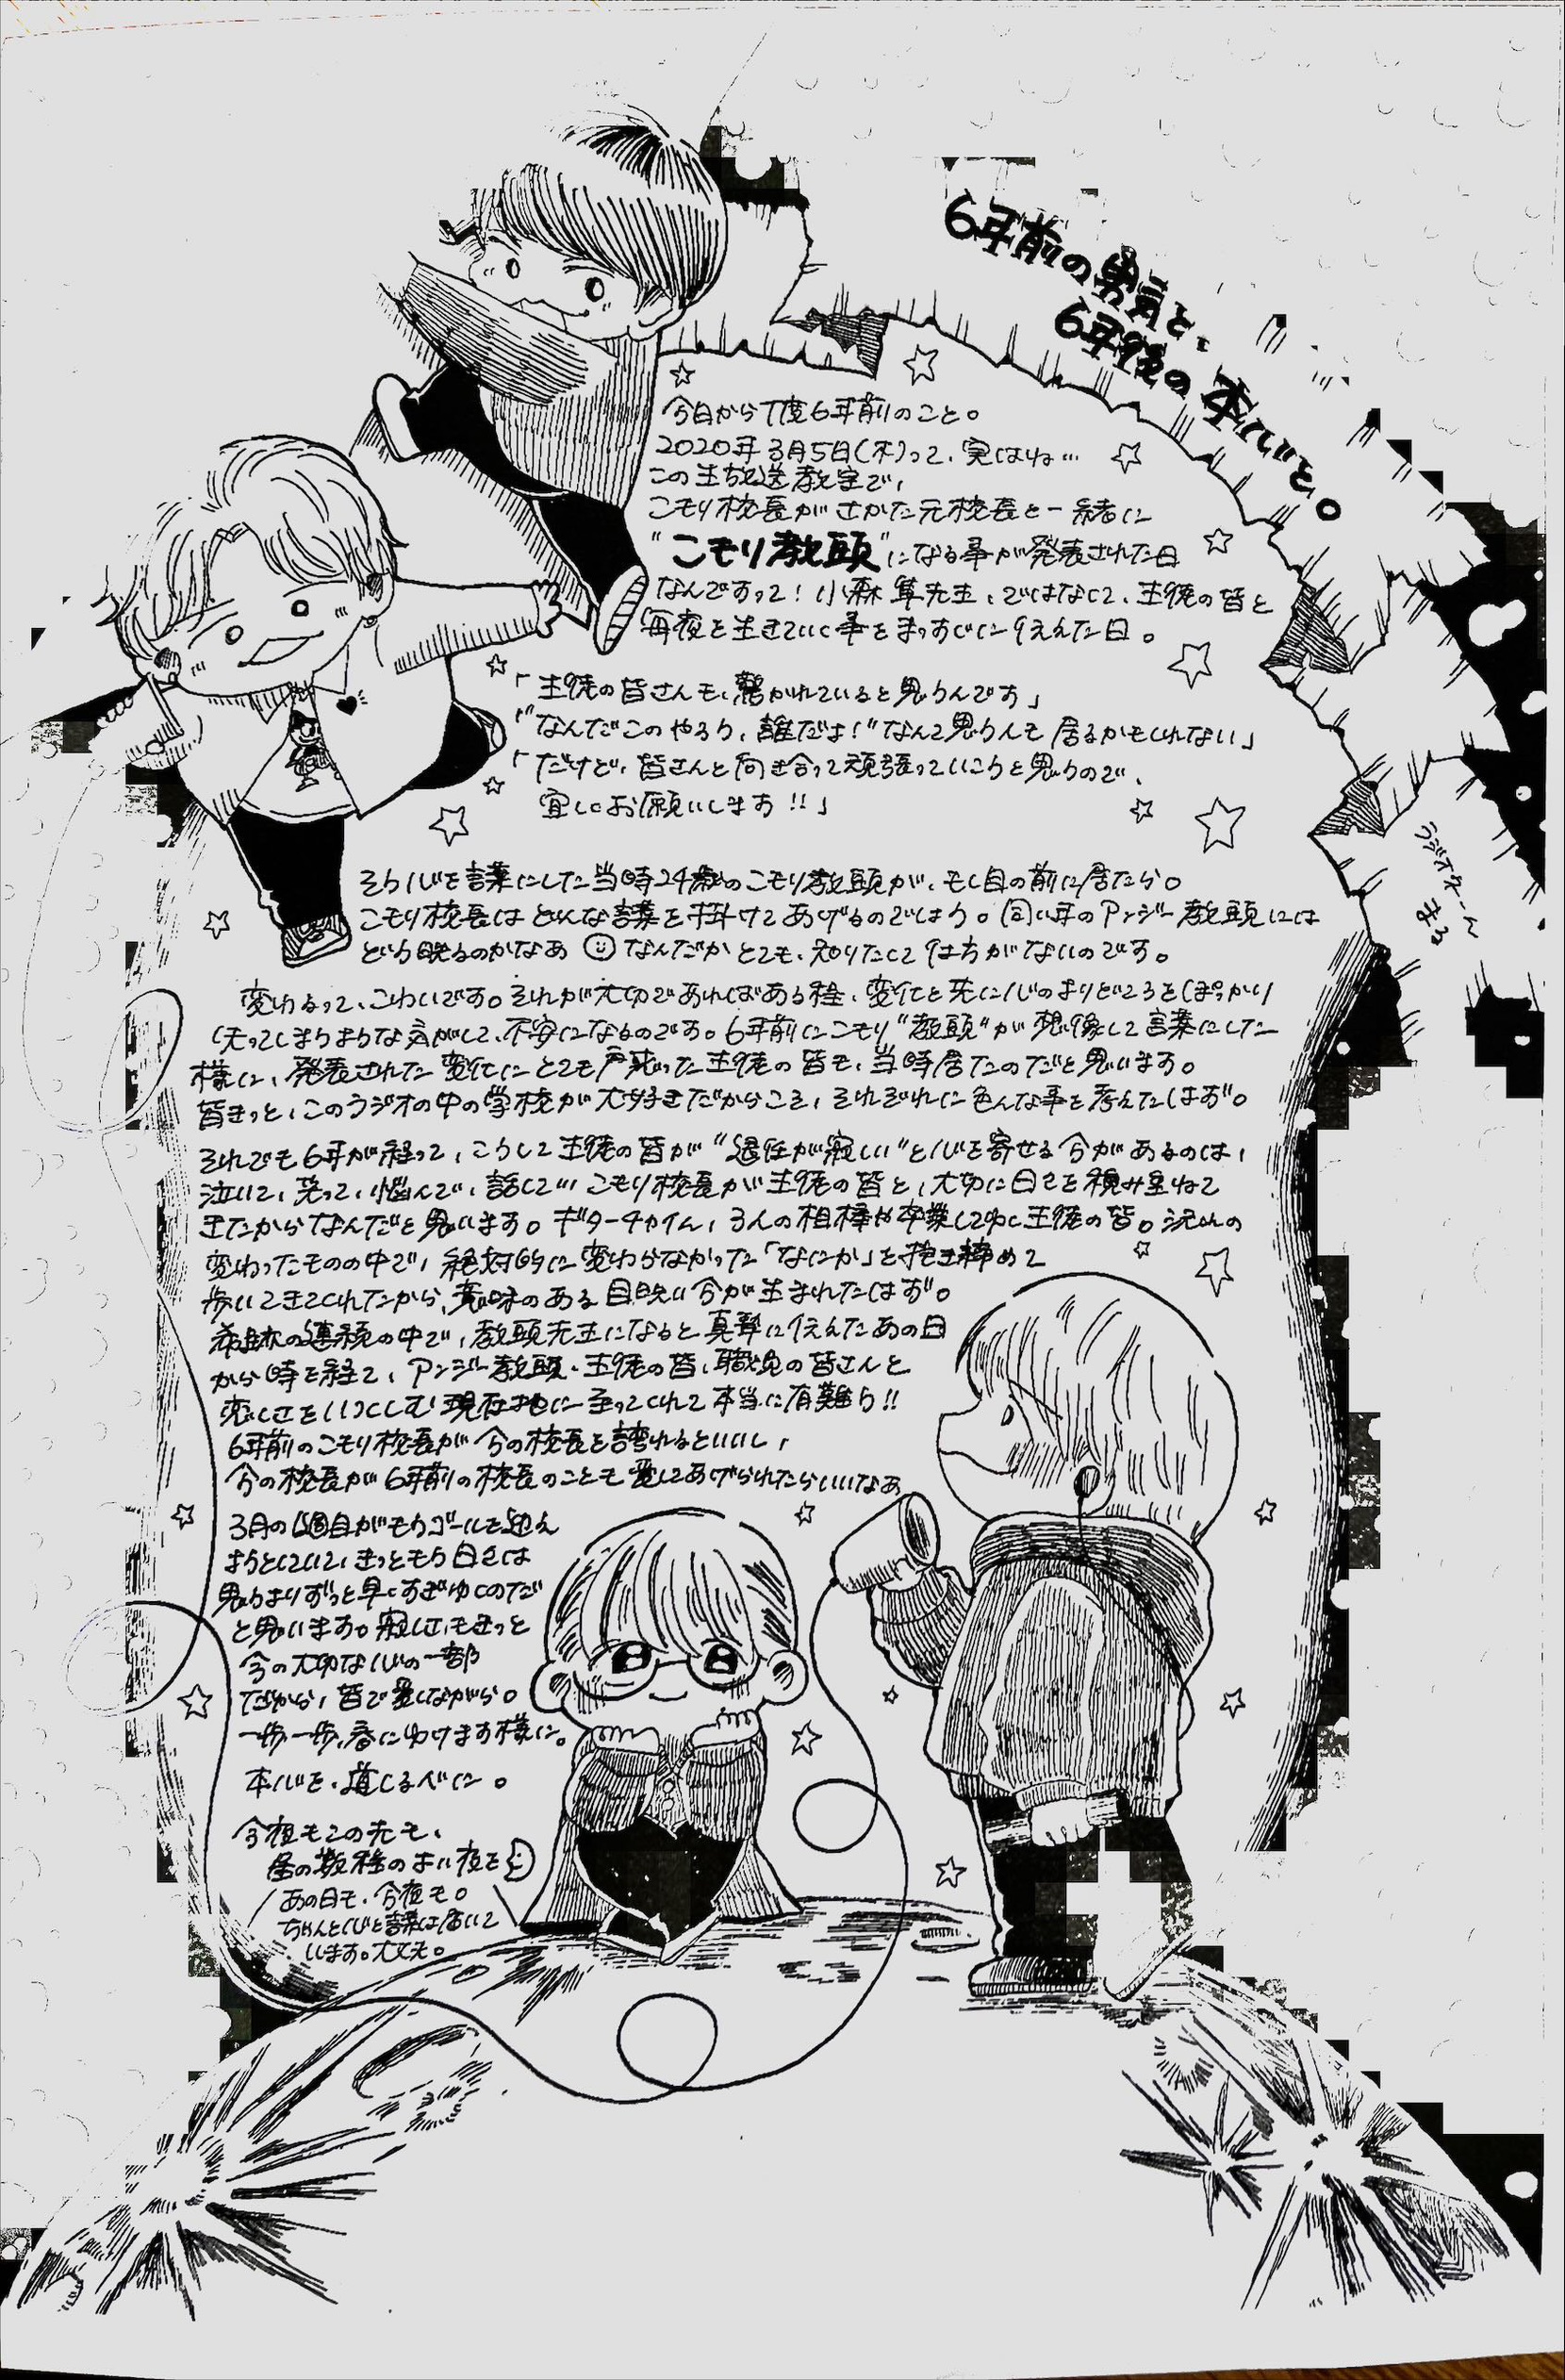 6年前の勇者と、
6年後の本心と。
今日から丁度6年前のこと。
2020年3月5日(木)って、実はね…
この生放送教室で、
こもり校長がさかた元校長と一緒に
"こもり教頭"になる事が発表された日
なんですって！小森隼先生、ではなくて、生徒の皆と
毎夜を生きていく事をまっすぐに伝えた日。
「生徒の皆さんも、驚かれていると思うんです」
「"なんだこのやろう、誰だよ！"なんて思う人も居るかもしれない」
「だけど、皆さんと向き合って頑張っていこうと思うので、
宜しくお願いします!!」
そう心を言葉にした当時24歳のこもり教頭が、もし目の前に居たら。
こもり校長はどんな言葉を掛けてあげるのでしょう。同い年のアンジー教頭には
どう映るのかなあ なんだかとても、知りたくて仕方がないのです。
変わるって、こわいです。それが大切であればある程、変化と共に心のよりどころをぽっかり
失ってしまうような気がして、不安になるのです。6年前にこもり"教頭"が想像して言葉にした
様に、発表された変化にとても戸惑った生徒の皆も、当時居たのだと思います。
皆きっと、このラジオの中の学校が大好きだからこそ、それぞれに色んな事を考えたはず。
それでも6年が経って、こうして生徒の皆が"退任が寂しい"と心を寄せる今があるのは、
泣いて、笑って、悩んで、話して… こもり校長が生徒の皆と、大切に日々を積み重ねて
きたからなんだと思います。ギターチャイム、3人の相棒や卒業してゆく生徒の皆。沢山の
変わったものの中で、絶対的に変わらなかった「なにか」を抱き締めて
歩いてきてくれたから、意味のある目映い今が生まれたはず。
の連続の中で、教頭先生になると真摯に伝えたあの日
から時を経て、アンジー教頭、生徒の皆、職員の皆さんと
恋しさをいつくしむ現在地に至ってくれて本当に有難う!!
6年前のこもり校長が今の校長を誇れるといいし、
今の校長が6年前の校長のことも愛してあげられたらいいなあ
3月の1週目がもうゴールを迎え
ようとしていて、きっともう日々は
思うよりずっと早くすぎゆくのだ
と思います。寂しさもきっと
今の大切な心の一部
だから、皆で愛しながら。
一歩一歩、春にゆけます様に。
本心を、道しるべに。
今夜もこの先も、
星の数程のよい夜を
あの日も、今夜も。
ちゃんと心と言葉は届いて
います。大丈夫。
ラジオネーム
まる